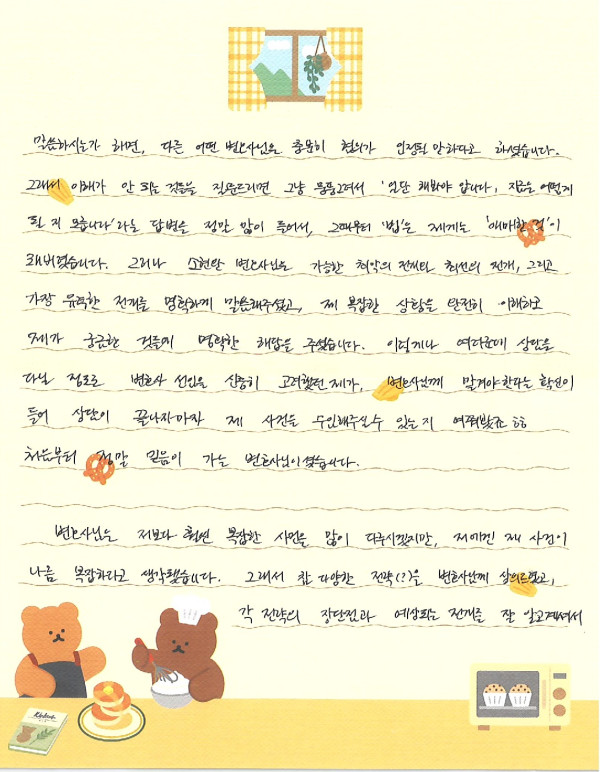 말씀하시는가 하면, 다른 어떤 변호사님은 충분히 혐의가 인정될 만하다고 하셨습니다.
그래서 이해가 안 되는 것들을 질문드리면 그냥 뭉뚱그려서 '일단 해봐야 압니다, 지금은 어떻게
될 지 모릅니다'라는 답변을 정말 많이 들어서, 그때부터 '법'은 제게는 '애매한 것'이
돼버렸습니다. 그러나 변호사님은 가능한 최악의 전개와 최선의 전개, 그리고
가장 유력한 전개를 명확하게 말씀해주셨고, 제 복잡한 상황을 완전히 이해하고
제가 궁금한 것들에 명확한 해답을 주셨습니다. 이렇게나 여러군데 상담을
다닐 정도로 변호사 선임을 신중히 고려했던 제가, 변호사님께 맡겨야겠다는 확신이
들어 상담이 끝나자마자 제 사건을 수임해주실 수 있는지 여쭤봤죠 ㅎㅎ
처음부터 정말 믿음이 가는 변호사님이셨습니다.
변호사님은 저보다 훨씬 복잡한 사건을 많이 다루시겠지만, 저에겐 제 사건이
나름 복잡하다고 생각했습니다. 그래서 참 다양한 전략(?)을 변호사님께 상의드렸고,
각 전략의 장단점과 예상되는 전개를 잘 알고계셔서